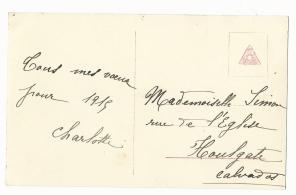 Tous mes vœux
pour 1915
Charlotte
Mademoiselle Simon
rue de l'Eglise
Houlgate
Calvados